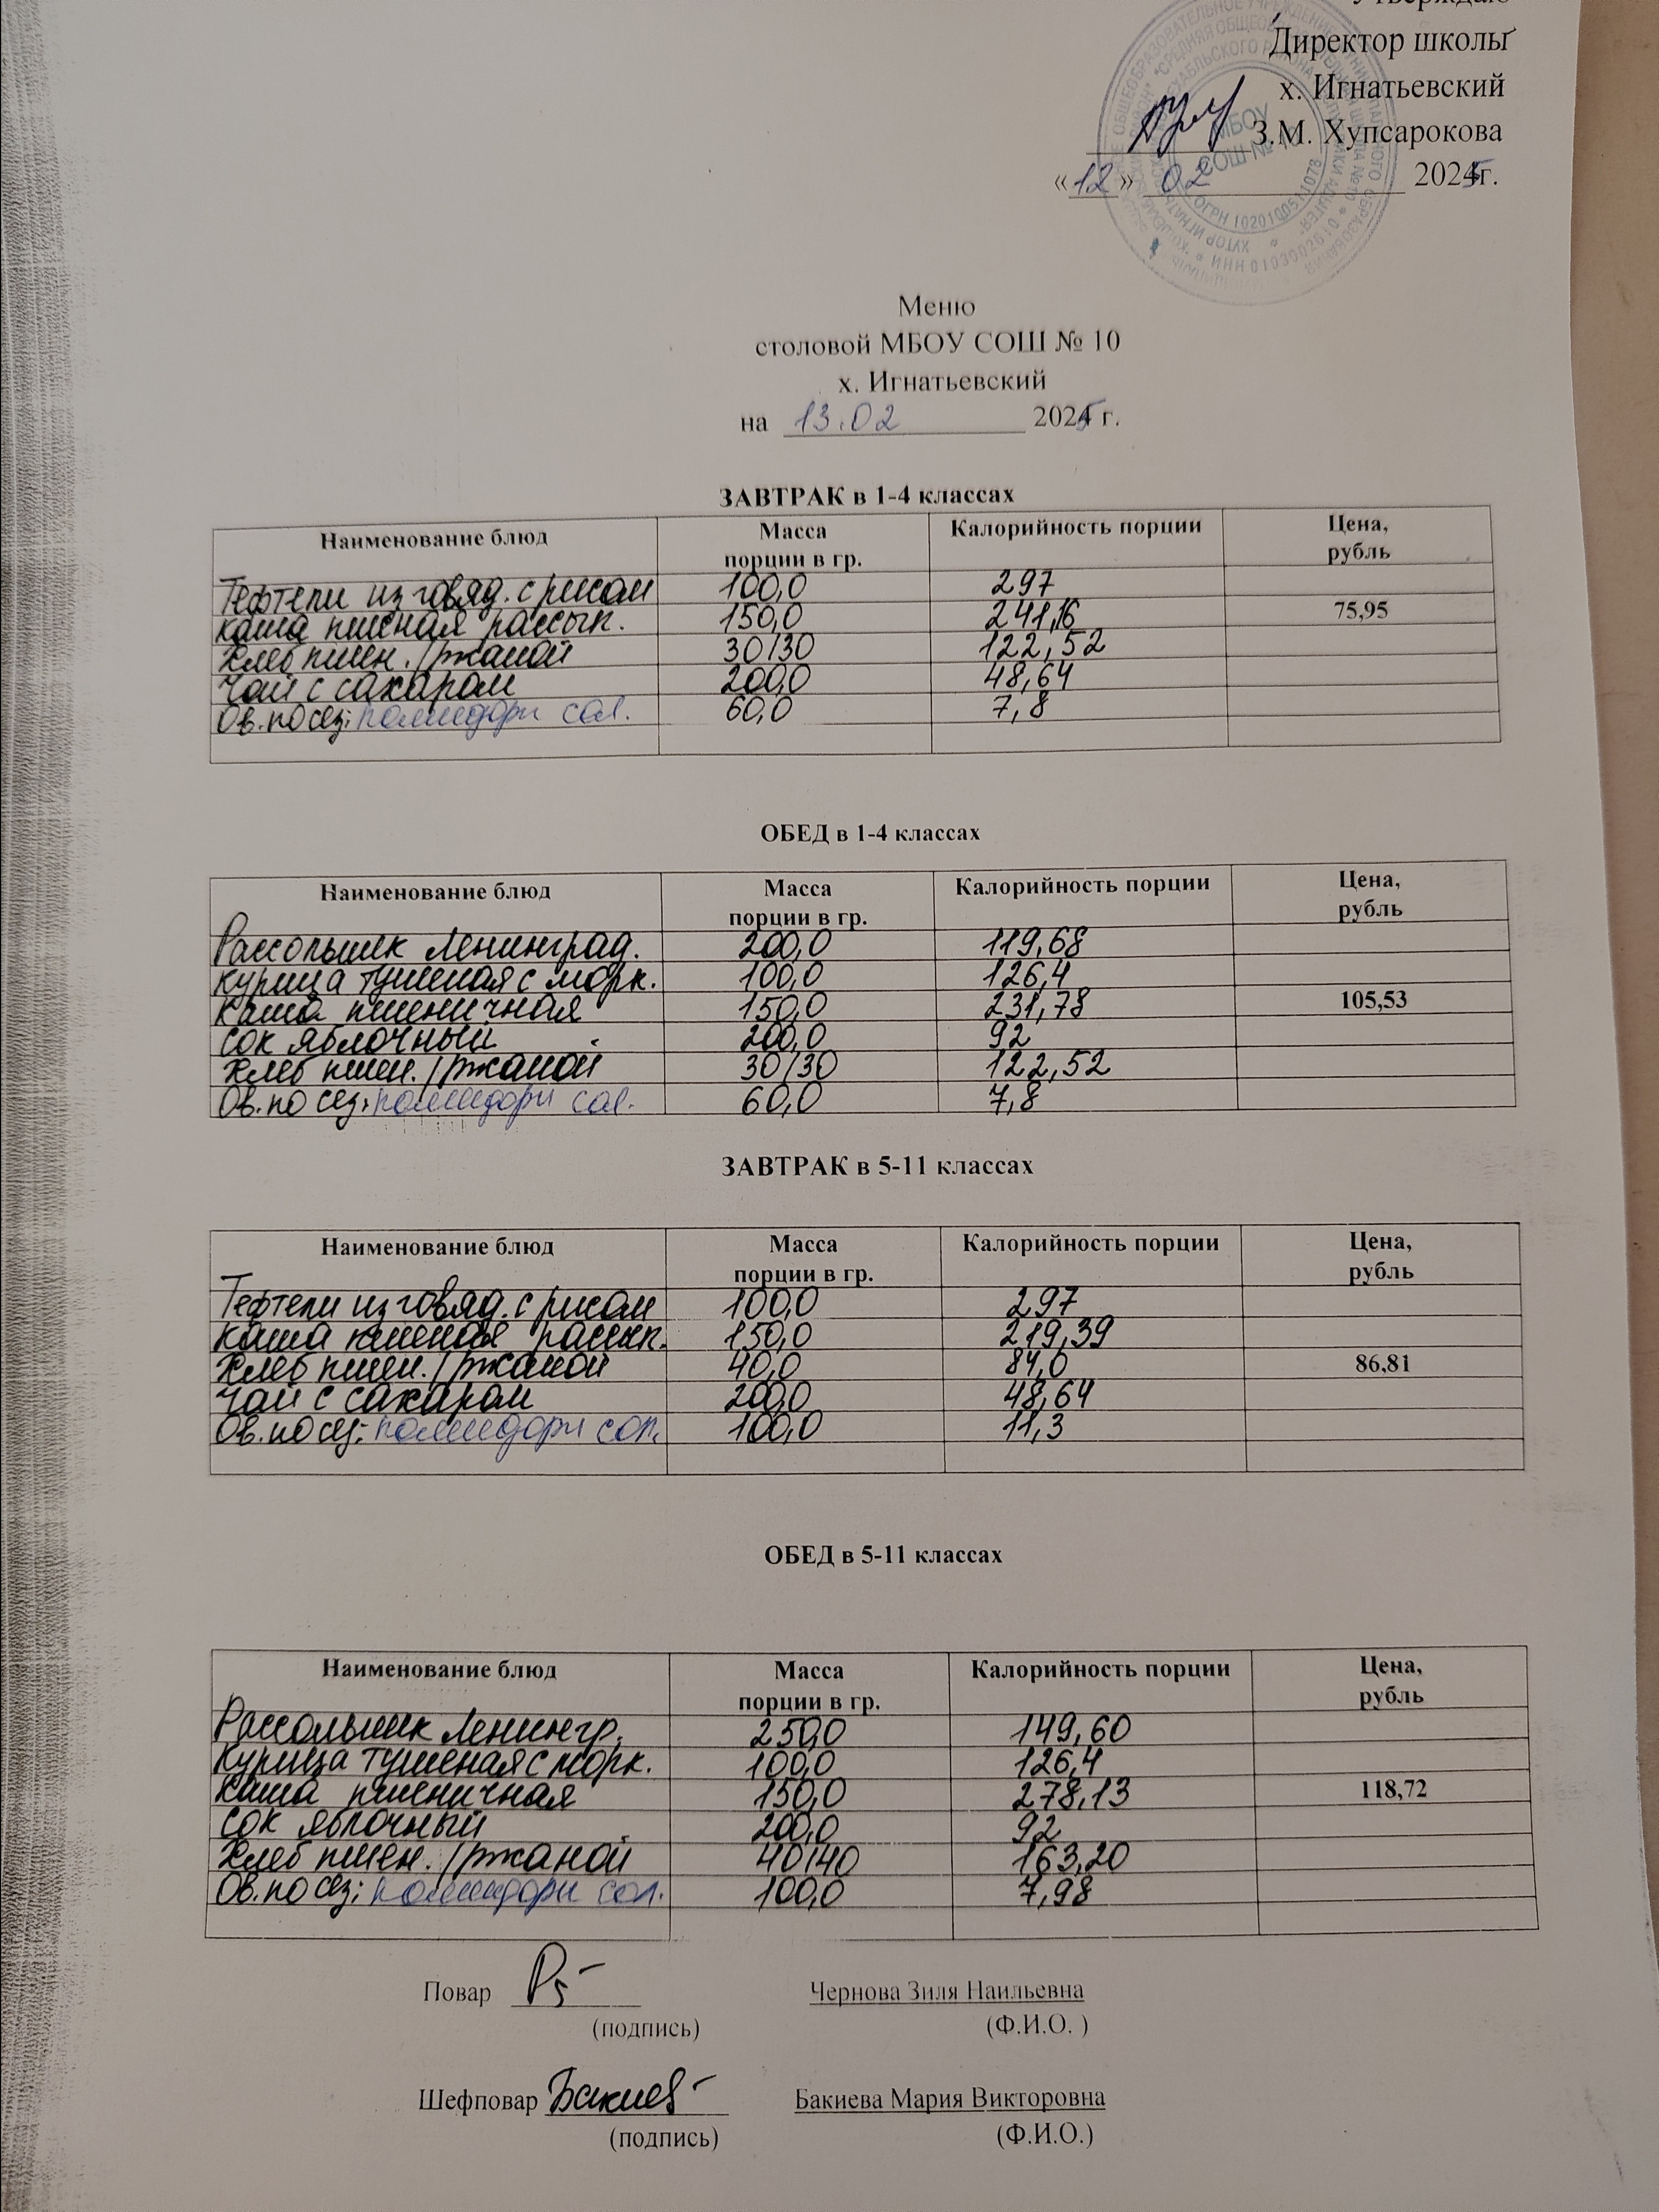 Утверждаю
Директор школы
х. Игнатьевский
З.М. Хупсарокова
«12» 02 2025г.
МБОУ
СОШ № 10
ОГРН 1020100511078
ИНН 0103002610
Меню
столовой МБОУ СОШ № 10
х. Игнатьевский
на 13.02 2025 г.
ЗАВТРАК в 1-4 классах
Наименование блюд Масса порции в гр. Калорийность порции Цена, рубль
Тефтели из говяд. с рисом 100,0 297
каша пшеная рассып. 150,0 241,16 75,95
Хлеб пшен. / ржаной 30/30 122,52
Чай с сахаром 200,0 48,64
Ов. по сез: помидоры сол. 60,0 7,8
ОБЕД в 1-4 классах
Наименование блюд Масса порции в гр. Калорийность порции Цена, рубль
Рассольник Ленинград. 200,0 119,68
курица тушеная с морк. 100,0 126,4
каша пшеничная 150,0 231,78 105,53
сок яблочный 200,0 92
Хлеб пшен. / ржаной 30/30 122,52
Ов. по сез: помидоры сол. 60,0 7,8
ЗАВТРАК в 5-11 классах
Наименование блюд Масса порции в гр. Калорийность порции Цена, рубль
Тефтели из говяд. с рисом 100,0 297
каша пшеная рассып. 150,0 219,39
Хлеб пшен. / ржаной 40,0 84,0 86,81
Чай с сахаром 200,0 48,64
Ов. по сез: помидоры сол. 100,0 11,3
ОБЕД в 5-11 классах
Наименование блюд Масса порции в гр. Калорийность порции Цена, рубль
Рассольник Ленингр. 250,0 149,60
Курица тушеная с морк. 100,0 126,4
каша пшеничная 150,0 278,13 118,72
сок яблочный 200,0 92
Хлеб пшен. / ржаной 40/40 163,20
Ов. по сез: помидоры сол. 100,0 7,98
Повар Чернова Зиля Наильевна
(подпись) (Ф.И.О. )
Шефповар Бакиев Бакиева Мария Викторовна
(подпись) (Ф.И.О.)